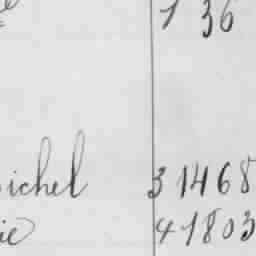 1 36
ichel 3 1468
ie 4 1803